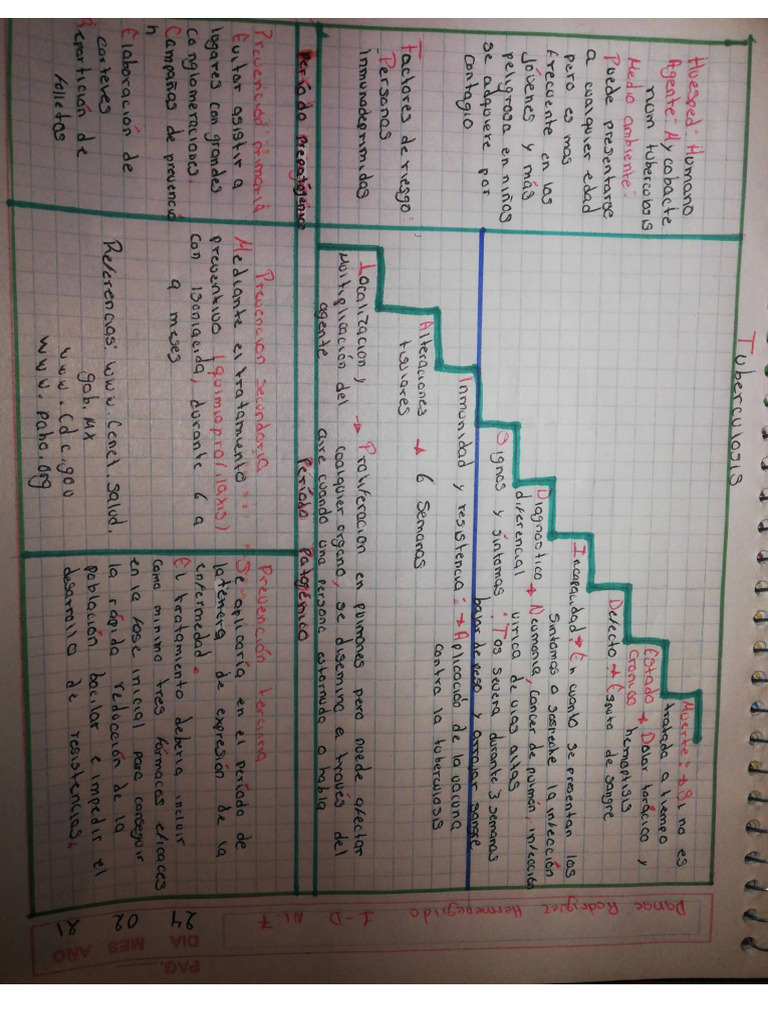 Tuberculosis
Huesped: Humano
Agente: Mycobacte
rium tuberculosis
Medio ambiente:
Puede presentarse
a cualquier edad
pero es mas
frecuente en los
Jóvenes y más
peligrosa en niñas
se adquiere por
contagio
Factores de riesgo:
Personas
inmunodeprimidas
Período prepatogénico
Muerte: → Si no es
tratada a tiempo
Estado → Dolor torácico y
Crónico hemoptisis
Defecto → Esputo de sangre
Incapacidad → En cuanto se presentan los
síntomas o sospeche la infección
Diagnostico → Neumonía, Cancer de pulmón, infección
diferencial vírica de vias altas
Signos y síntomas: Tos severa durante 3 semanas
bajar de peso y arrojar sangre
Inmunidad y resistencia: → Aplicación de la vacuna
contra la tuberculosis
Alteraciones → 6 semanas
tisulares
Localizacion y → Proliferacion en pulmones pero puede afectar
Multiplicación del cualquier organo, se disemina a través del
agente aire cuando una persona estornuda o habla
Período Patogénico
Prevención primaria
Evitar asistir a
lugares con grandes
conglomeraciones.
Campañas de prevenció
n
Elaboración de
carteles
Repartición de
folletos
Prevencion secundaria
Mediante el tratamiento
preventivo (quimioprofilaxis)
con isoniacida, durante 6 a
9 meses
Referencias: www.Cenel.salud.
gob.mx
www.cdc.gov
www.paho.org
Prevención terciaria
Se aplicaría en el período de
latencia de expresión de la
enfermedad.
El tratamiento debería incluir
como minimo tres fármacos eficaces
en la fase inicial para conseguir
la rápida reducción de la
población bacilar e impedir el
desarrollo de resistencias.
Danae Rodríguez Hermenegildo 1-D Nl.7
24 02 21
DIA MES AÑO
PAG.